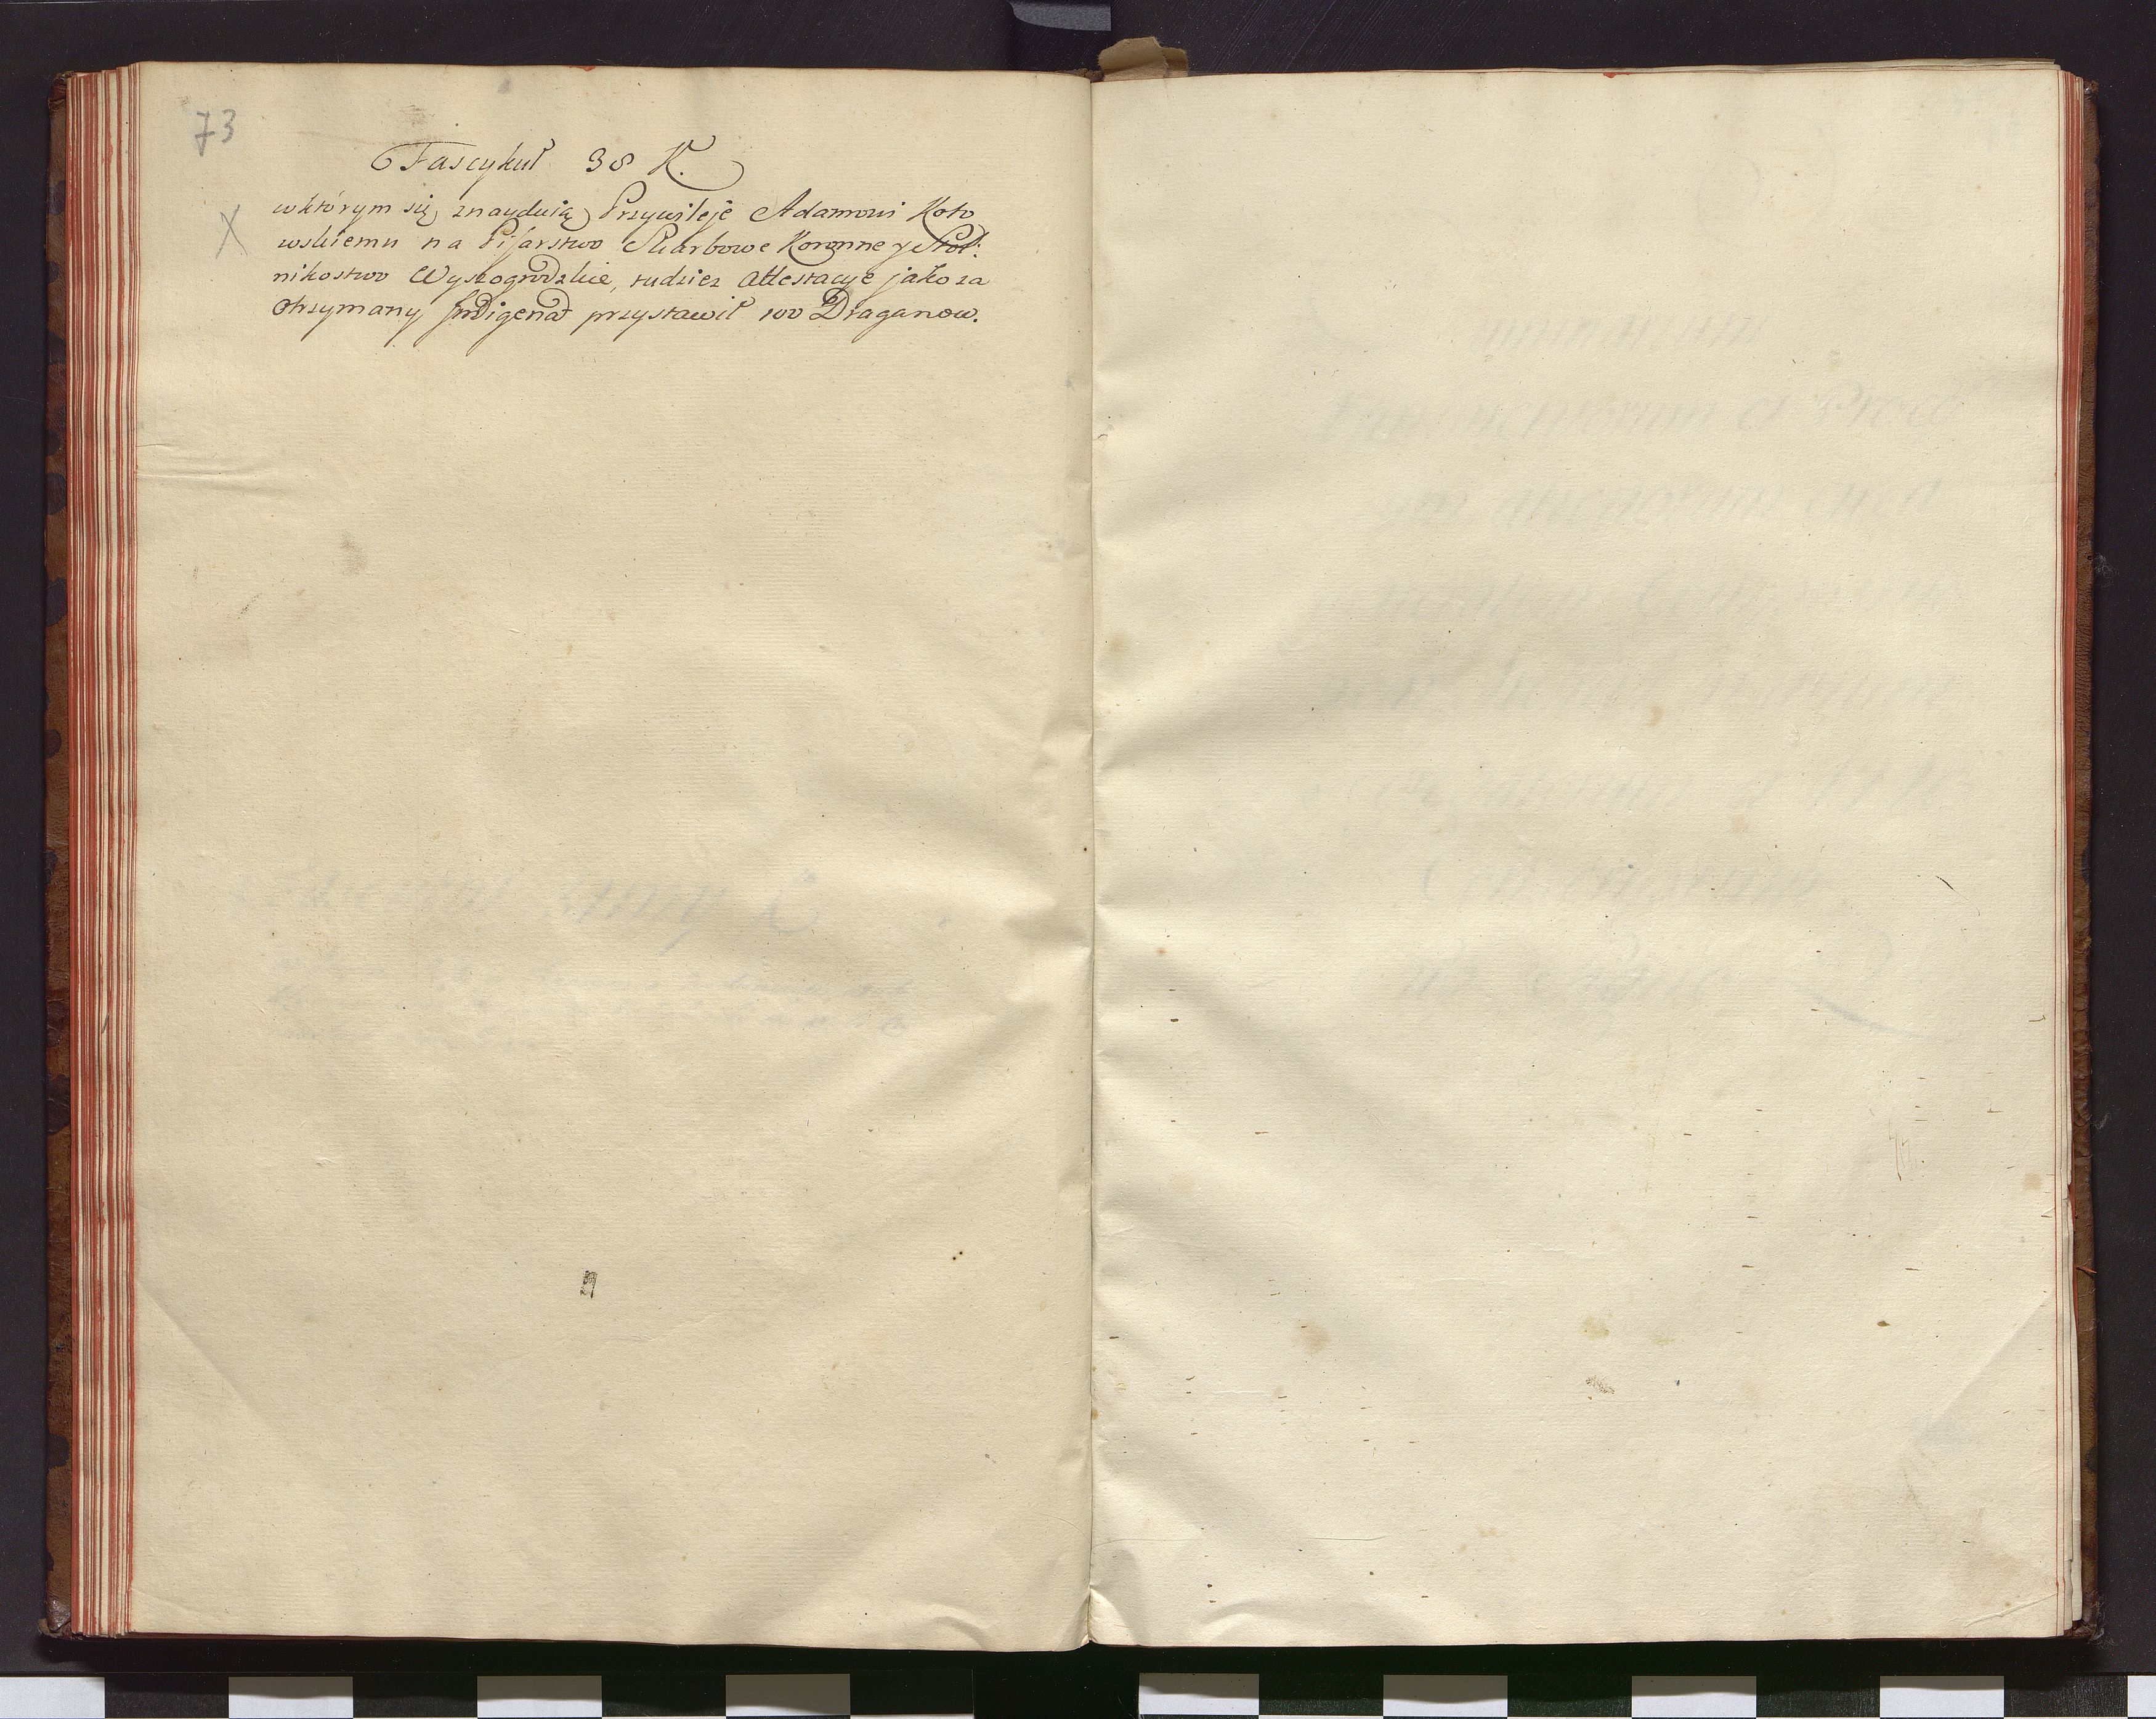 73
Fascykuł 38 K.
X
wktórym się znayduią Przywileje Adamowi Koto
wskiemu na Pisarstwo Skarbowe Koronne y Stol:
nikostwo Wyszogrodzkie, tudziez Attestacye jako za
Otrzymany Indigenat przystawił 100 Draganow.